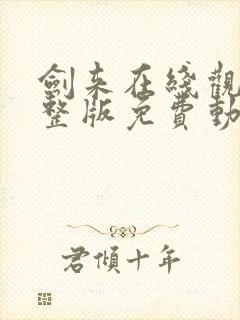 劍来在綫觀
整版免費動
君傾十年